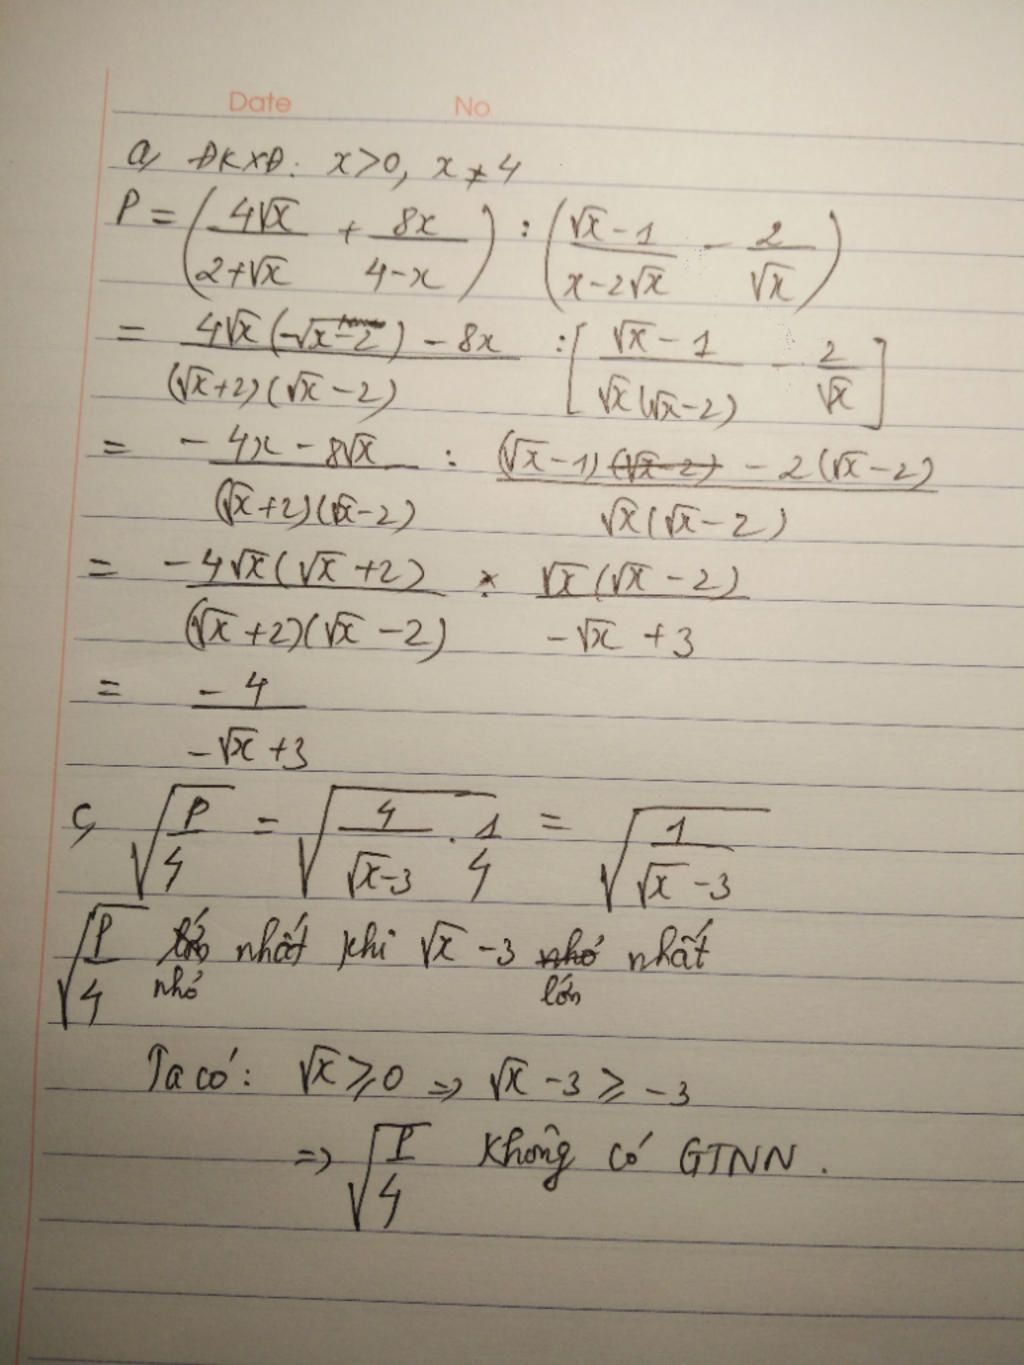 Date No
a, ĐKXĐ: x>0, x≠4
P = (4√x/(2+√x) + 8x/(4-x)) : ((√x-1)/(x-2√x) - 2/√x)
= (4√x(√x-2) - 8x)/((√x+2)(√x-2)) : [(√x-1)/(√x(√x-2)) - 2/√x]
= (-4x-8√x)/((√x+2)(√x-2)) : ((√x-1) (√x-2) - 2(√x-2))/(√x(√x-2))
= (-4√x(√x+2))/((√x+2)(√x-2)) × (√x(√x-2))/(-√x+3)
= -4/(-√x+3)
c, √(P/4) = √(4/(√x-3) . 1/4) = √(1/(√x-3))
√(P/4) nhỏ nhất khi √x-3 lớn nhất
Ta có: √x ≥ 0 => √x-3 ≥ -3
=> √(P/4) không có GTNN.